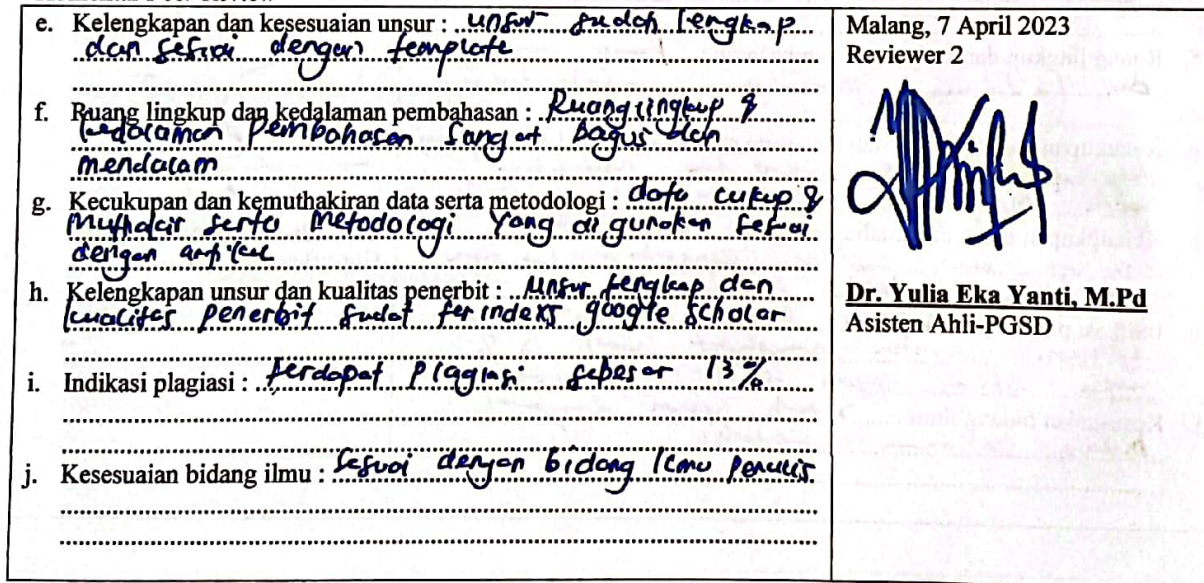 e. Kelengkapan dan kesesuaian unsur : unsur sudah lengkap
dan sesuai dengan template
f. Ruang lingkup dan kedalaman pembahasan : Ruang lingkup &
kedalaman pembahasan sangat bagus dan
mendalam
g. Kecukupan dan kemuthakiran data serta metodologi : data cukup &
muthakir serta metodologi yang digunakan sesuai
dengan artikel
h. Kelengkapan unsur dan kualitas penerbit : unsur lengkap dan
kualitas penerbit sudah terindeks google scholar
i. Indikasi plagiasi : terdapat plagiasi sebesar 13%
j. Kesesuaian bidang ilmu : sesuai dengan bidang ilmu penulis
Malang, 7 April 2023
Reviewer 2
Dr. Yulia Eka Yanti, M.Pd
Asisten Ahli-PGSD